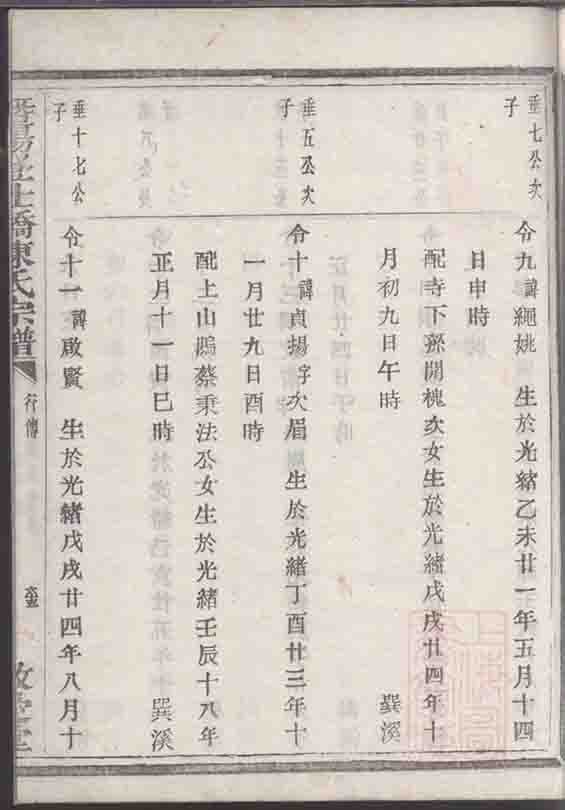 垂七公次
子
令九諱繩姚 生於光緒乙未廿一年五月十四
日申時
配寺下孫開槐次女生於光緒戊戌廿四年十
月初九日午時 巽溪
垂五公次
子
令十諱貞揚字次眉 生於光緒丁酉廿三年十
一月廿九日酉時
配上山鴫蔡秉法公女生於光緒壬辰十八年
正月十一日巳時 巽溪
垂十七公
子
令十一諱啟賢 生於光緒戊戌廿四年八月十
橋陳氏宗譜
行傳